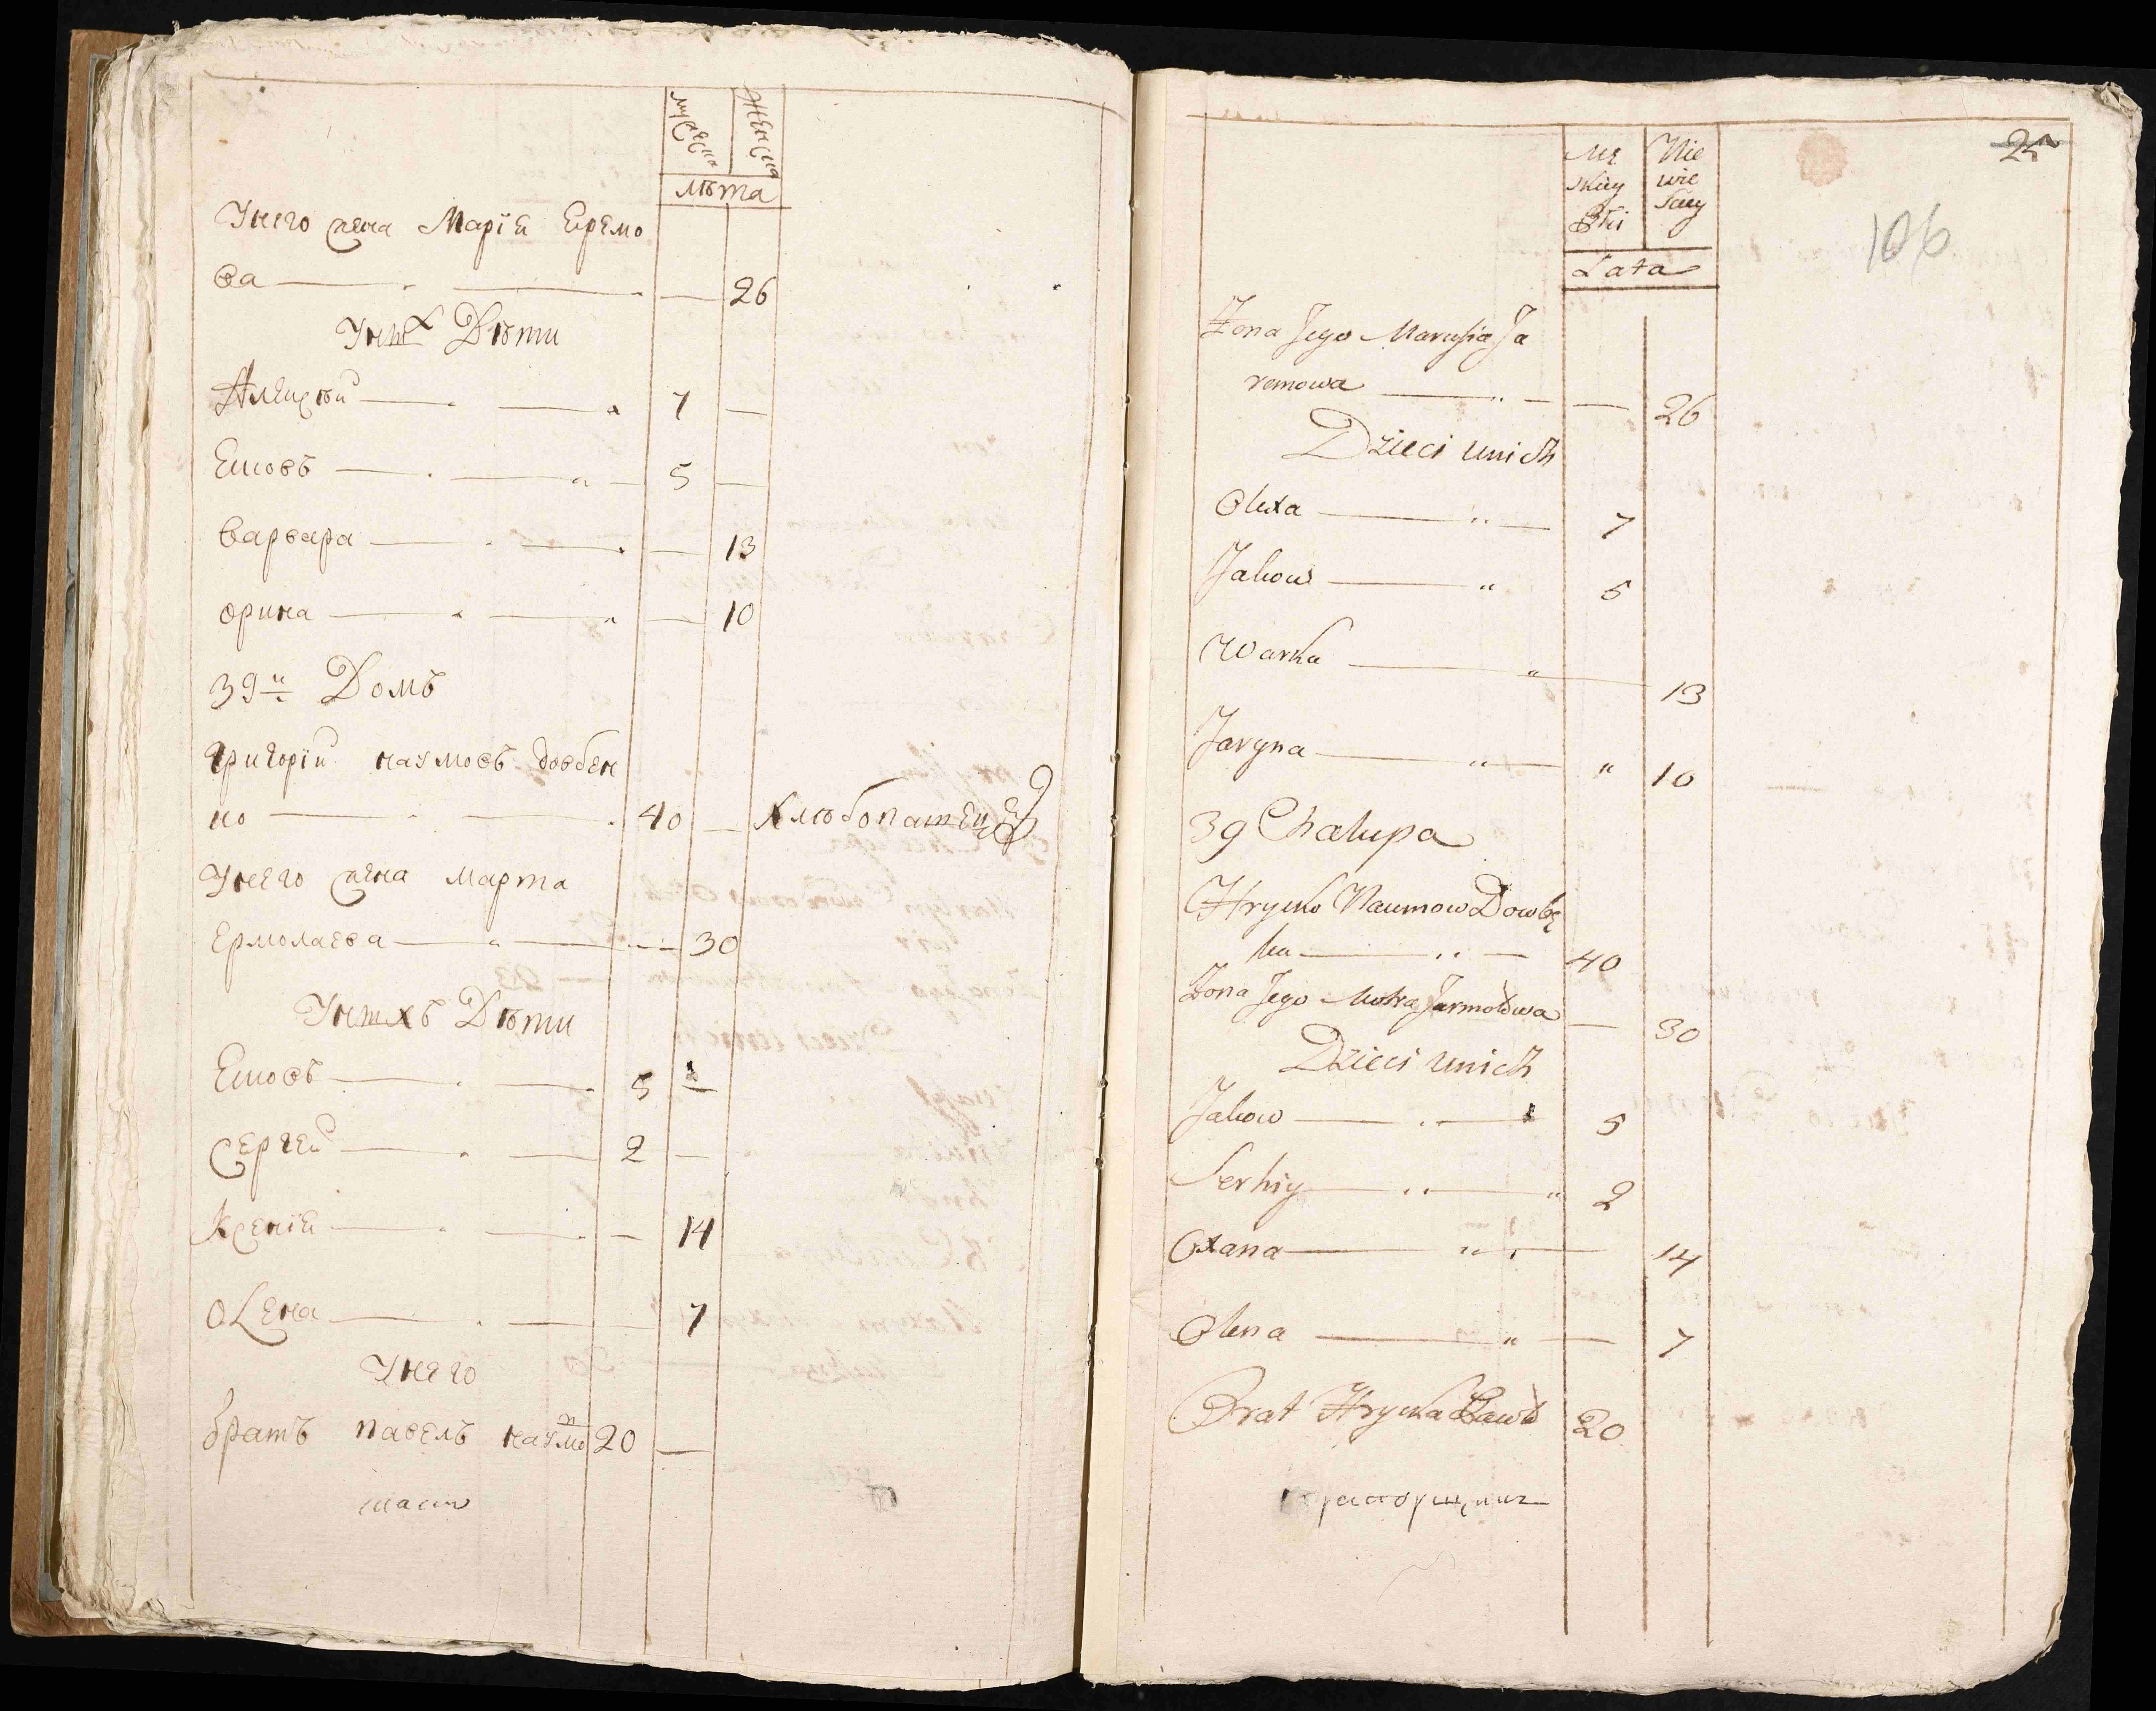 мужеска
женска
лѣта
Унего жена Марія Еремо
ва — — — 26
Унихъ Дѣти
Алексѣй — — 7 —
Яковъ — — 5 —
варвара — — — 13
орина — — — 10
39й Домъ
григорій наумовъ довбен
ко — — 40 — хлѣбопашецъ
Унего жена марта
Ермолаева — — — 30
Унихъ Дѣти
Яковъ — — 5 —
Сергей — — 2 —
Ксенія — — — 14
оLена — — 7
Унего
братъ павелъ наумо 20 —
25
106
Mę
skiey
Płci
Nie
wie
sciey
Lata
Żona Jego Marusia Ja
remowa — — — 26
Dzieci unich
Olexa — — 7
Jakow — 5
Warka — 13
Jaryna — " 10
39 Chałupa
Hrycko Naumow Dowbę
ka — — 40
Żona Jego Motra Jarmołowa — 30
Dzieci unich
Jakow — — 5
Serhiy — — 2
Oxana — — 14
Olena — — 7
Brat Hrycka Pawło 20